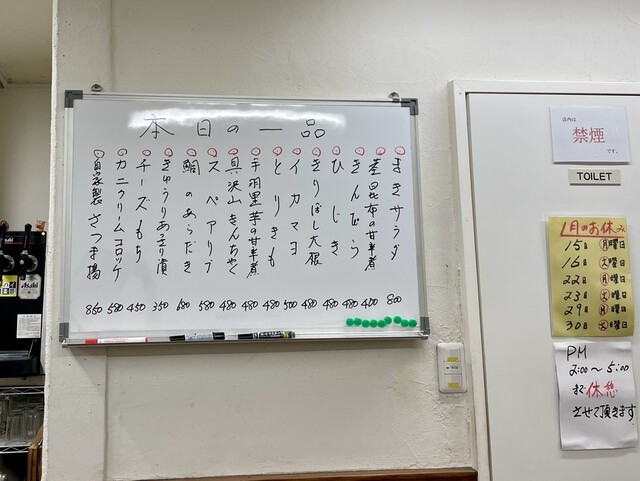 本日の一品
まきサラダ 800
茎昆布の甘辛煮 400
きんぴら 480
ひじき 480
きりぼし大根 480
イカマヨ 500
とりきも 480
手羽里芋の甘辛煮 480
具沢山きんちゃく 480
スペアリブ 580
鯛のあらだき 680
きゅうりあっさり漬 350
チーズもち 450
カニクリームコロッケ 580
自家製さつま揚 850
店内は
禁煙
です。
TOILET
1月のお休み
15日 月曜日
16日 火曜日
22日 月曜日
23日 火曜日
29日 月曜日
30日 火曜日
PM
2:00〜5:00
まで休憩
させて頂きます
Asahi